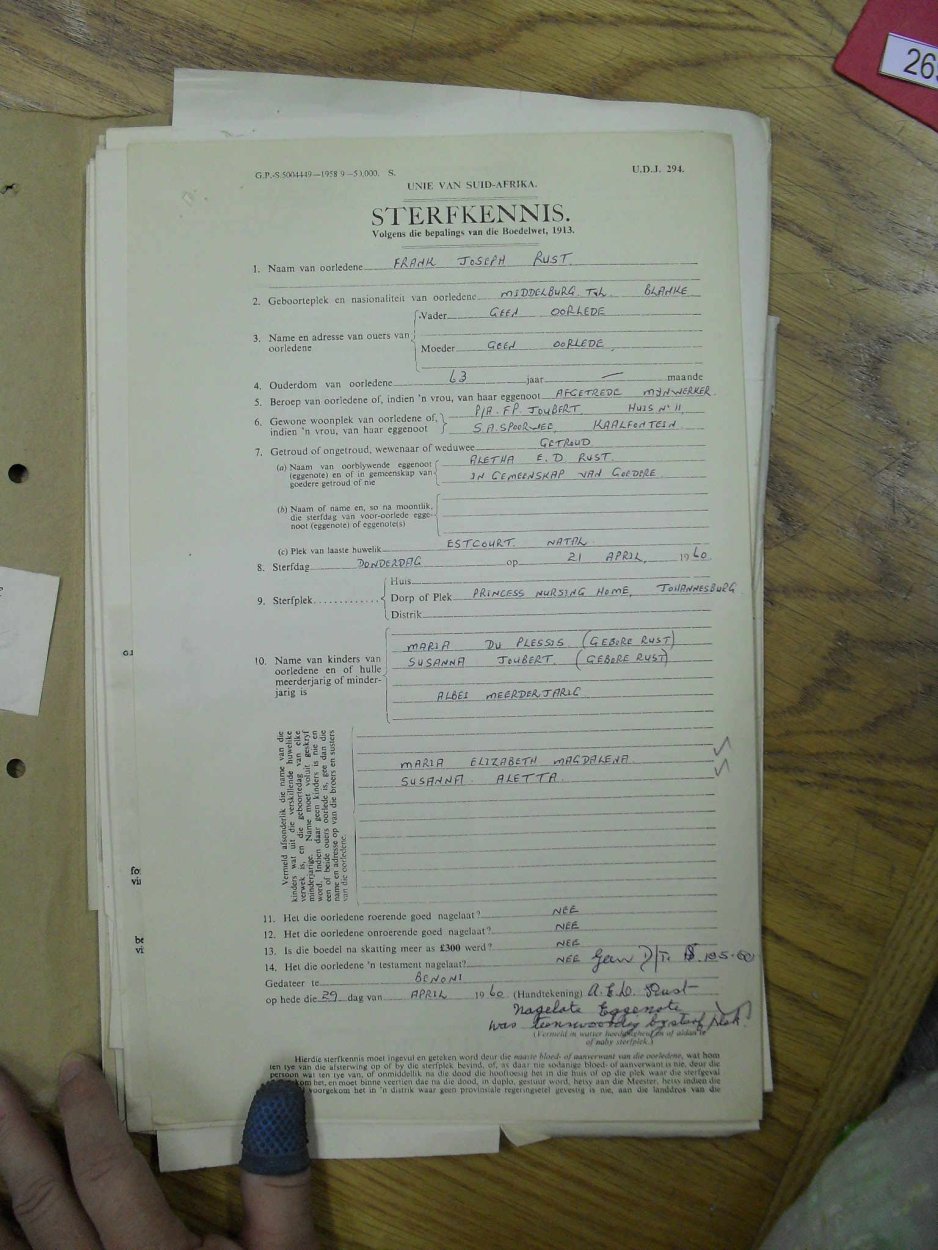 26
G.P.-S.5004449—1958-9—50,000. S.
U.D.J. 294.
UNIE VAN SUID-AFRIKA.
STERFKENNIS.
Volgens die bepalings van die Boedelwet, 1913.
1. Naam van oorledene FRANK JOSEPH RUST
2. Geboorteplek en nasionaliteit van oorledene MIDDELBURG. TVL. BLANKE
3. Name en adresse van ouers van oorledene
Vader GEEN OORLEDE
Moeder GEEN OORLEDE
4. Ouderdom van oorledene 63 jaar — maande
5. Beroep van oorledene of, indien 'n vrou, van haar eggenoot AFGETREDE MYNWERKER.
6. Gewone woonplek van oorledene of, indien 'n vrou, van haar eggenoot
P/A. F.P. JOUBERT HUIS No 11
S.A. SPOORWEË, KAALFONTEIN
7. Getroud of ongetroud, wewenaar of weduwee GETROUD
(a) Naam van oorblywende eggenoot
(eggenote) en of in gemeenskap van
goedere getroud of nie
ALETHA E.D RUST.
IN GEMEENSKAP VAN GOEDERE
(b) Naam of name en, so na moontlik,
die sterfdag van voor-oorlede egge-
noot (eggenote) of eggenote(s)
(c) Plek van laaste huwelik ESTCOURT. NATAL
8. Sterfdag DONDERDAG op 21 APRIL, 1960
9. Sterfplek
Huis
Dorp of Plek PRINCESS NURSING HOME, JOHANNESBURG
Distrik
10. Name van kinders van
oorledene en of hulle
meerderjarig of minder-
jarig is
MARIA DU PLESSIS (GEBORE RUST)
SUSANNA JOUBERT (GEBORE RUST)
ALBEI MEERDERJARIG
Vermeld afsonderlik die name van die
kinders wat uit die verskillende huwelike
verwek is, en die geboortedag van elke
minderjarige. Name moet voluit geskryf
word. Indien daar geen kinders is nie en
een of beide ouers oorlede is, gee dan die
name en adresse op van die broers en susters
van die oorledene.
MARIA ELIZABETH MAGDALENA
SUSANNA. ALETTA.
11. Het die oorledene roerende goed nagelaat? NEE
12. Het die oorledene onroerende goed nagelaat? NEE
13. Is die boedel na skatting meer as £300 werd? NEE
14. Het die oorledene 'n testament nagelaat? NEE Geen
Gedateer te BENONI
op hede die 29 dag van APRIL 1960 (Handtekening) A.E.D. Rust
Nagelate Eggenote
was teenswoordig by sterf plek.
(Vermeld in watter hoedanigheid en of aldan te
of naby sterfplek.)
Hierdie sterfkennis moet ingevul en geteken word deur die naaste bloed- of aanverwant van die oorledene, wat hom
ten tye van die afsterwing op of by die sterfplek bevind, of, as daar nie sodanige bloed- of aanverwant is nie, deur die
persoon wat ten tye van, of onmiddellik na die dood die hooftoesig het in die huis of op die plek waar die sterfgeval
het, en moet binne veertien dae na die dood, in duplo, gestuur word, hetsy aan die Meester, hetsy indien die
voorgekom het in 'n distrik waar geen provinsiale regeringsetel gevestig is nie, aan die landdros van die